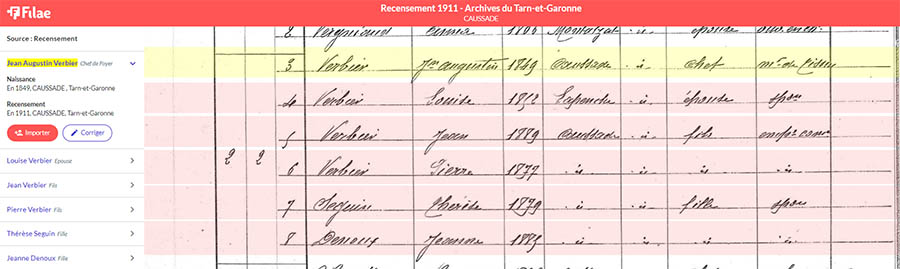 Filae
Recensement 1911 - Archives du Tarn-et-Garonne
CAUSSADE
Source : Recensement
Jean Augustin Verbier Chef de Foyer
Naissance
En 1849, CAUSSADE, Tarn-et-Garonne
Recensement
En 1911, CAUSSADE, Tarn-et-Garonne
Importer
Corriger
Louise Verbier Epouse
Jean Verbier Fils
Pierre Verbier Fils
Thérèse Seguin Fille
Jeanne Denoux Fille
2 Vergniaud Emma
3 Verbier Jean augustin 1849 Caussade id chef
4 Verbier Louise épouse
2 2
5 Verbier Jean 1879 Caussade id fils
6 Verbier Pierre 1877 id id id id
7 Seguin Thérèse 1879 id id fille
8 Denoux Jeanne id id id id